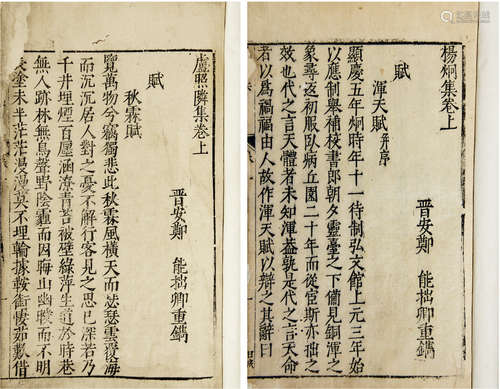 楊炯集卷上
晉安鄭 能拙卿重鐫
賦
渾天賦 并序
顯慶五年炯時年十一待制弘文館上元三年始
以應制舉補校書郎朝夕靈臺之下備見銅渾之
象尋返初服臥病丘園二十年而從宦斯亦拙之
效也代之言天體者未知渾蓋孰是代之言天命
者以為禍福由人故作渾天賦以辯之其辭曰
盧照隣集卷上
晉安鄭 能拙卿重鐫
賦
秋霖賦
覽萬物兮竊獨悲此秋霖風橫天而瑟瑟雲覆海
而沉沉居人對之憂不解行客見之思已深若乃
千井埋煙百廛涵潦青苔被壁綠萍生道於時巷
無人跡林無鳥聲野陰霾而因晦山幽曖而不明
長塗未半茫茫漫漫莫不埋輪據鞍銜悽茹歎借